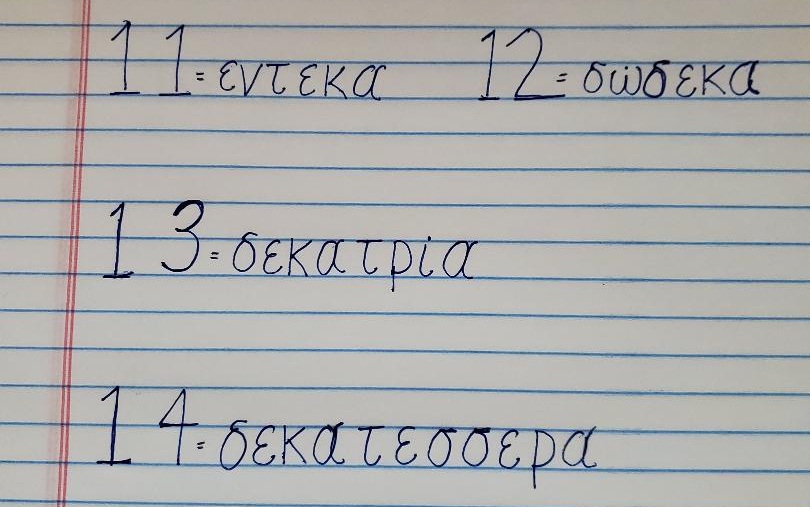 11=εντεκα 12=δωδεκα
13=δεκατρία
14=δεκατεσσερα